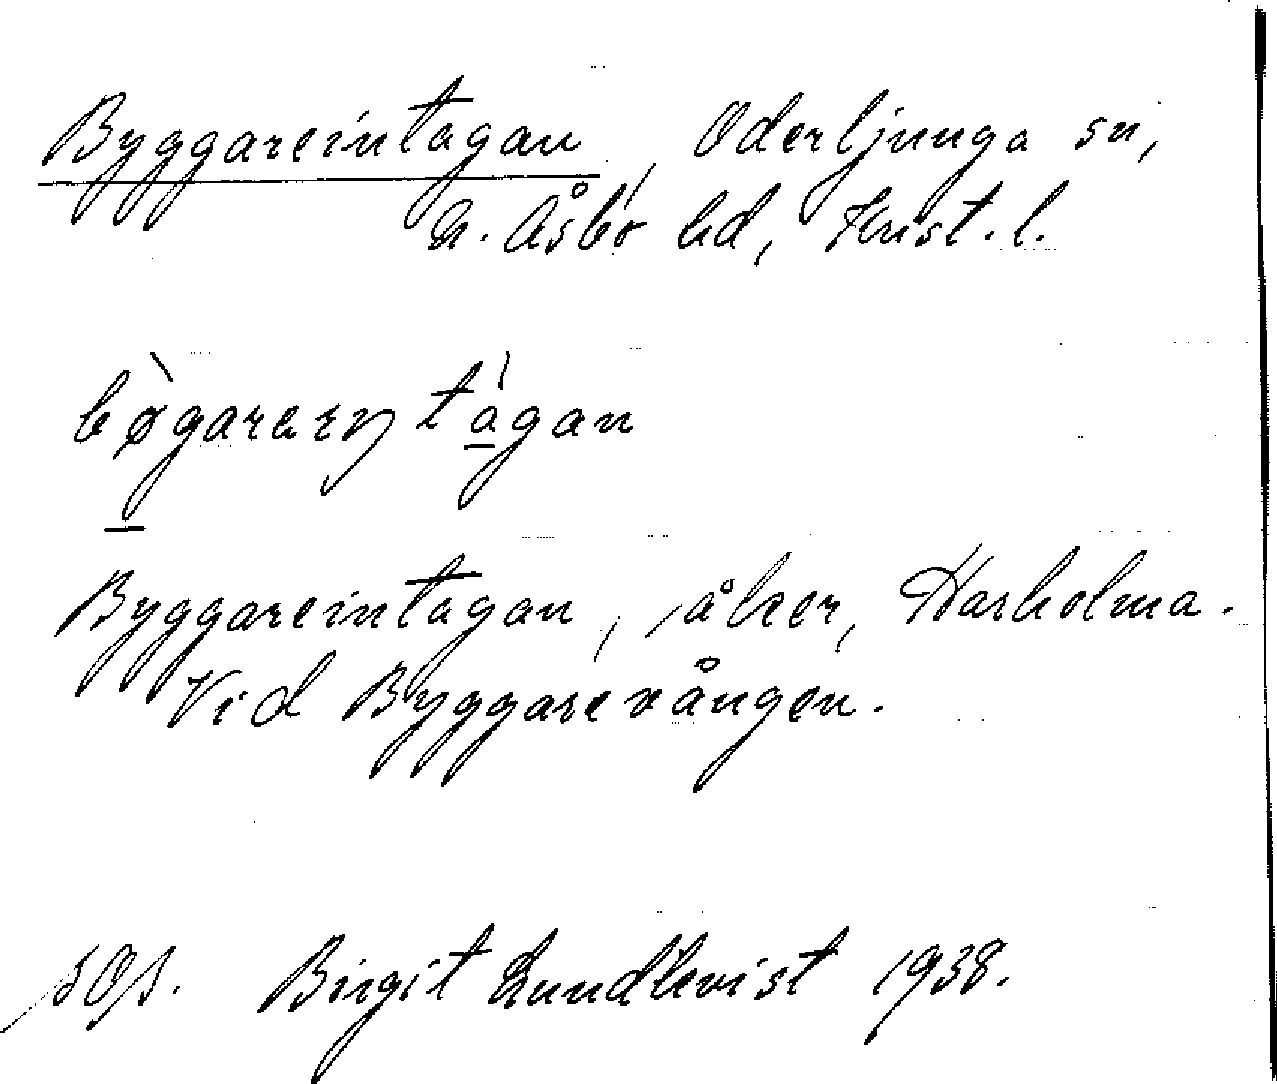 Byggareintagan, Oderljunga sn,
N. Åsbo hd, Krist. l.
bøgararıntagan
Byggareintagan, åker, Harholma.
Vid Byggarevången.
Birgit Lundkvist 1938.